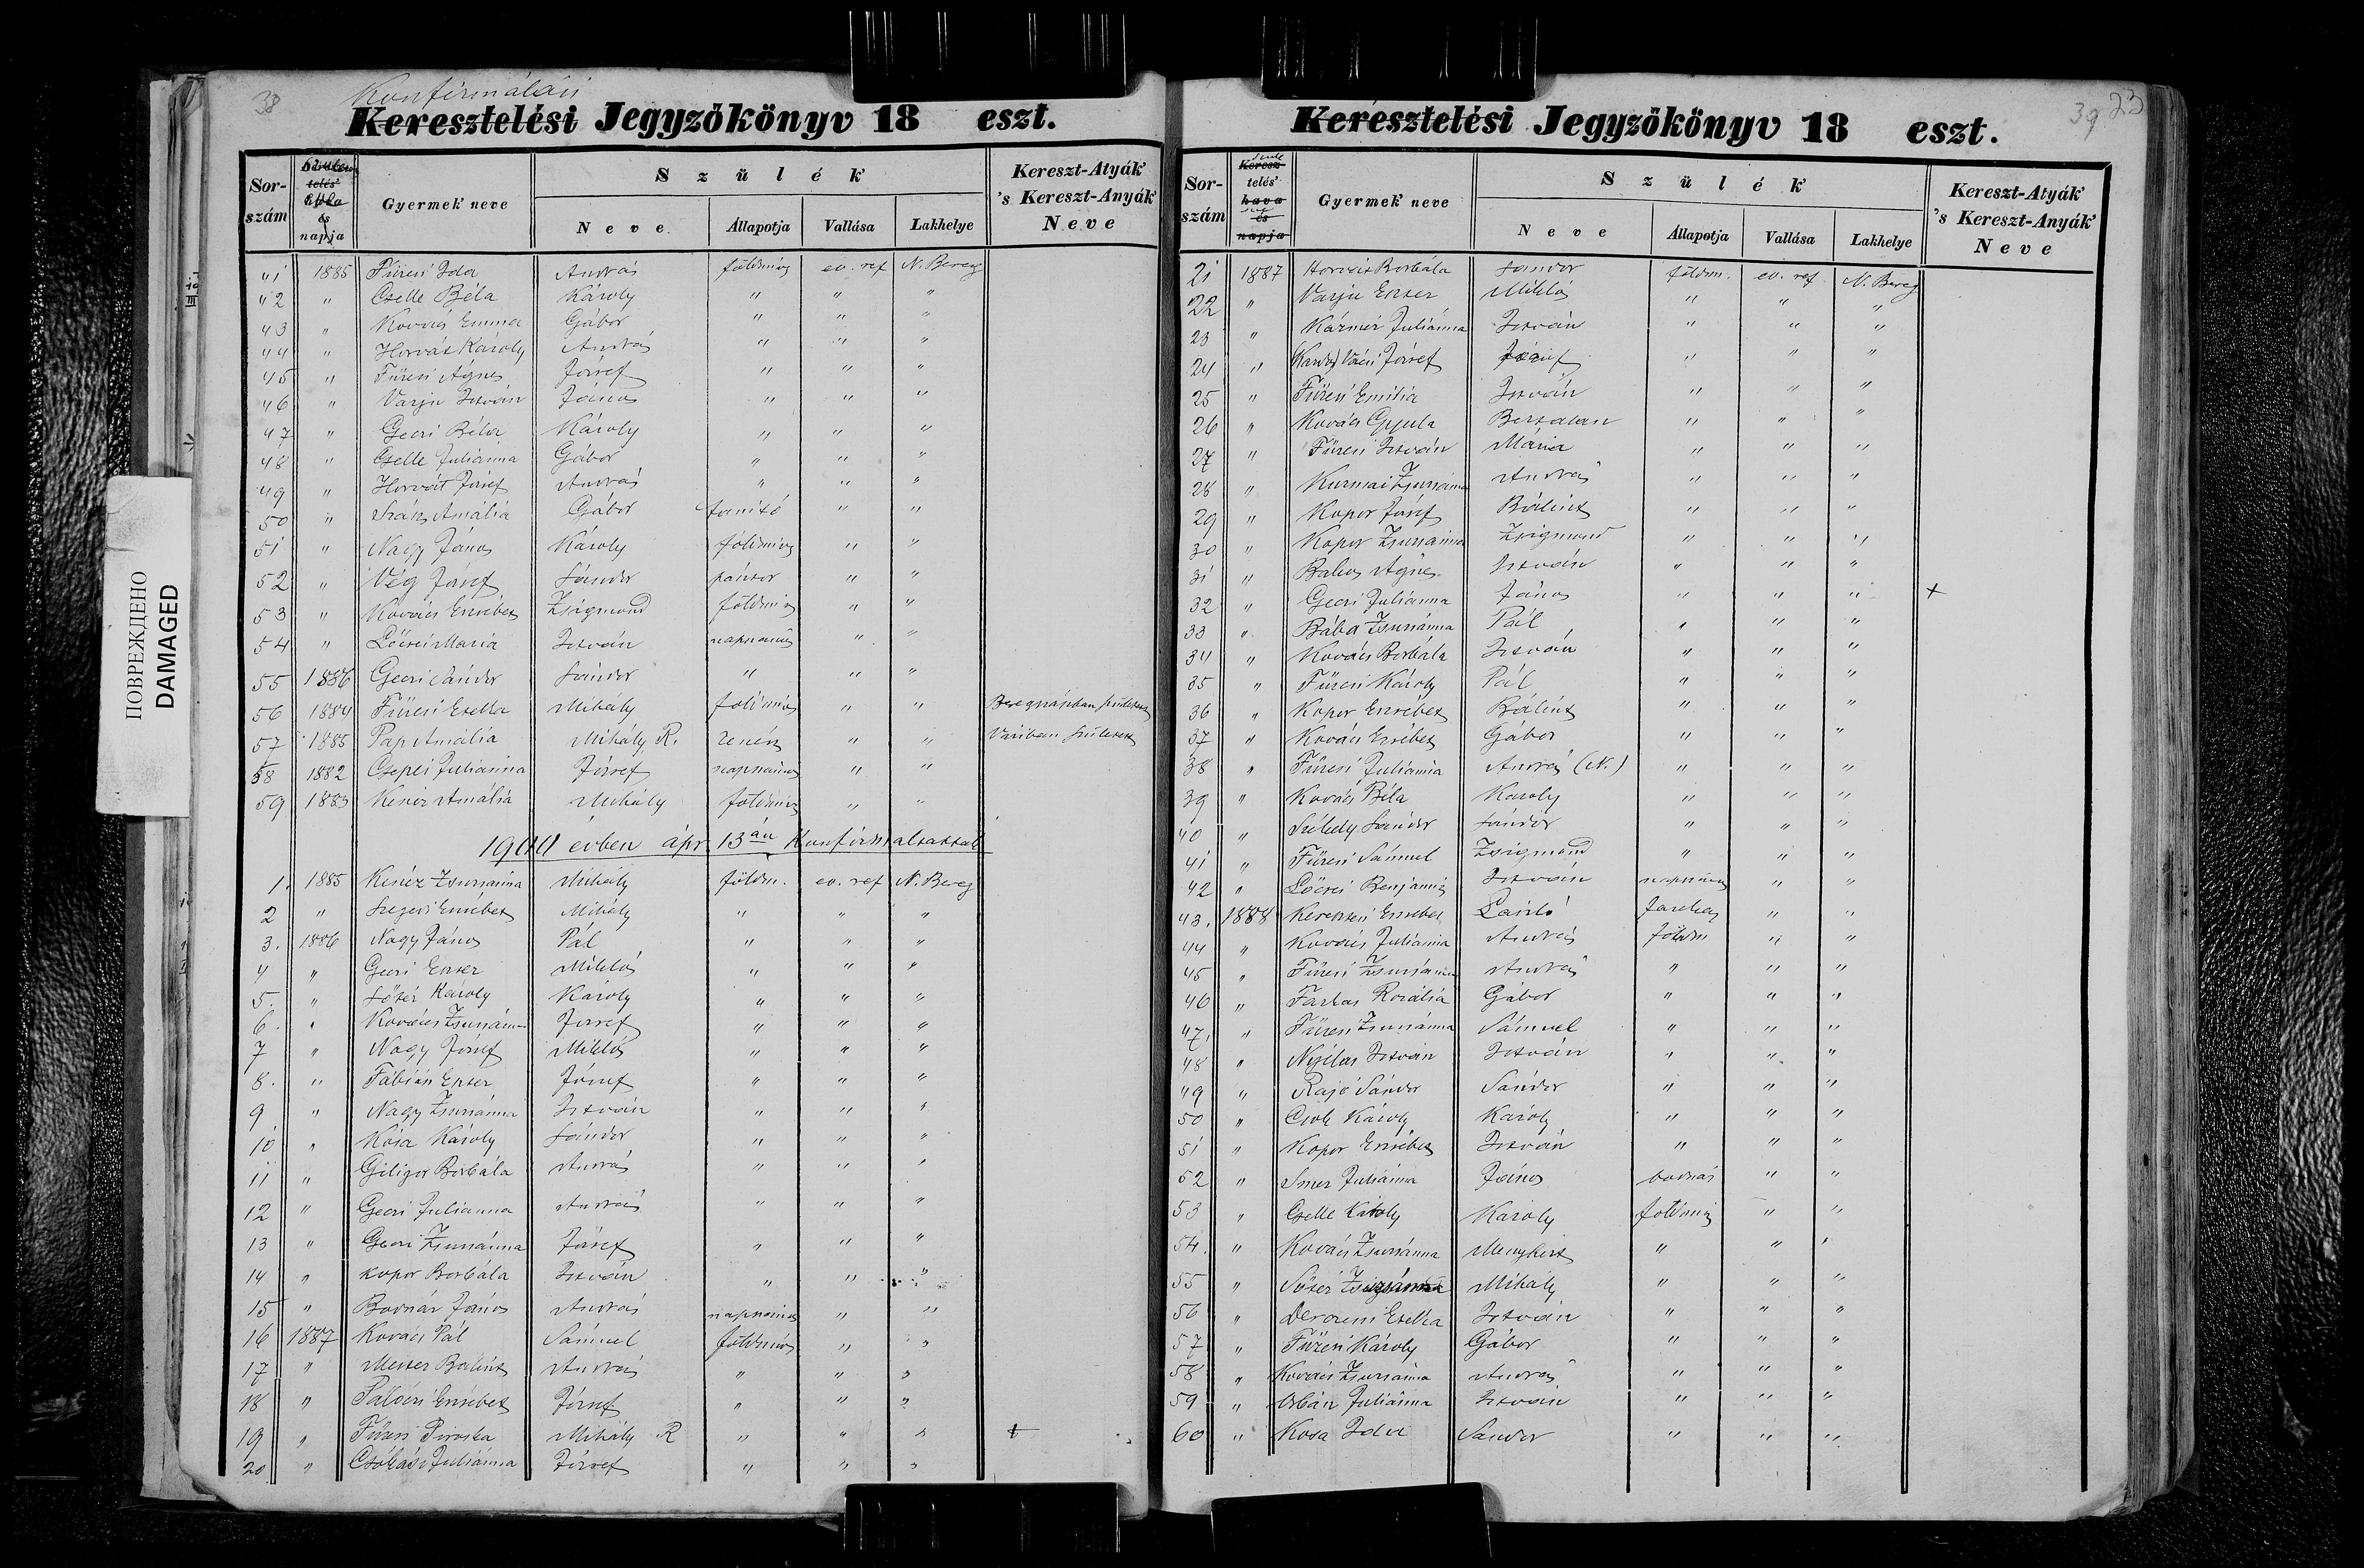 38
Konfirmálási
Keresztelési Jegyzőkönyv 18 eszt.
Sor-szám
napja
Gyermek neve
Szülék
Neve
Állapotja
Vallása
Lakhelye
Kereszt-Atyák 's Kereszt-Anyák Neve
41 1885 Füresi Ida András földmives ev. ref N. Bereg
42 " Cselle Béla Károly " " "
43 " Kovács Emma Gábor " " "
44 " Horvát Károly András " " "
45 " Füresi Ágnes József " " "
46 " Varju István János " " "
47 " Gecsi Béla Károly " " "
48 " Cselle Juliánna Gábor " " "
49 " Horvát József András " " "
50 " Amália Gábor tanitó " "
51 " Nagy János Károly földmives " "
52 " Vég József Sándor pásztor " "
53 " Kovács Erzsébet Zsigmond földmives " "
54 " Lőcsei Mária István napszámos " "
55 1886 Gecsi Sándor Sándor " " "
56 1884 Füresi Eszter Mihály földmives " " született
57 1885 Pap Amália Mihály R. " " Váriban született
58 1882 Csepei Juliánna József napszámos " "
59 1883 Kenéz Amália Mihály földmives " "
1901 évben ápr 13án Konfirmáltattak
1. 1885 Kenéz Zsuzsánna Mihály földm. ev. ref N. Bereg
2 " Szegedi Erzsébet Mihály " " "
3. 1886 Nagy János Pál " " "
4 " Gecsi Eszter Miklós " " "
5. " Sőtér Károly Károly " " "
6. " Kovács Zsuzsánna József " " "
7 " Nagy József Miklós " " "
8. " Fábián Eszter József " " "
9 " Nagy Zsuzsánna István " " "
10 " Kósa Károly Sándor " " "
11 " Giligor Borbála András " " "
12 " Gecsi Julianna András " " "
13 " Gecsi Zsuzsánna József " " "
14 " Kopor Borbála István " " "
15 " Bodnár János András napszámos " "
16 1887 Kovács Pál Sámuel földmives " "
17 " Mester Bálint András " " "
18 " Palócsi Erzsébet József " " "
19 " Füresi Piroska Mihály R " " " +
20 " Csókási Juliánna József " " "
39 23
Keresztelési Jegyzőkönyv 18 eszt.
Sor-szám
Keresz-telés' hava és napja
Gyermek neve
Szülék
Neve
Állapotja
Vallása
Lakhelye
Kereszt-Atyák 's Kereszt-Anyák Neve
21 1887 Horvát Borbála Sándor földm. ev. ref N. Bereg
22 " Varju Eszter Miklós " " "
23 " Kázmér Juliánna István " " "
24 " József József " " "
25 " Füresi Emilia István " " "
26 " Kovács Gyula Bertalan " " "
27 " Füresi István Mária " " "
28 " Kurmai Zsuzsánna András " " "
29 " Kopor József Bálint " " "
30 " Kopor Zsuzsánna Zsigmond " " "
31 " Balog Ágnes István " " "
32 " Gecsi Juliánna János " " " +
33 " Bába Zsuzsánna Pál " " "
34 " Kovács Borbála István " " "
35 " Füresi Károly Pál " " "
36 " Kopor Erzsébet Bálint " " "
37 " Kovács Erzsébet Gábor " " "
38 " Füresi Juliánna András (N.) " " "
39 " Kovács Béla Károly " " "
40 " Székely Sándor Sándor " " "
41 " Füresi Sámuel Zsigmond " " "
42 " Lőcsei Benjámin István napszámos " "
43. 1888 Keresztesi Erzsébet László " "
44 " Kovács Juliánna András földm " "
45 " Füresi Zsuzsánna András " " "
46 " Farkas Rozália Gábor " " "
47. " Füresi Zsuzsánna Sámuel " " "
48 " Nyilas István István " " "
49 " Rajó Sándor Sándor " " "
50 " Csok Károly Károly " " "
51 " Kopor Erzsébet István " " "
52 " Juliánna János bodnár " "
53 " Cselle Károly Károly földmives " "
54. " Kovács Zsuzsánna Menyhért " " "
55 " Sőtér Zsuzsánna Mihály " " "
56 " Dercseni Eszter István " " "
57 " Füresi Károly Gábor " " "
58 " Kovács Zsuzsánna András " " "
59 " Orbán Juliánna István " " "
60 " Kosa Ida Sándor " " "
ПОВРЕЖДЕНО
DAMAGED